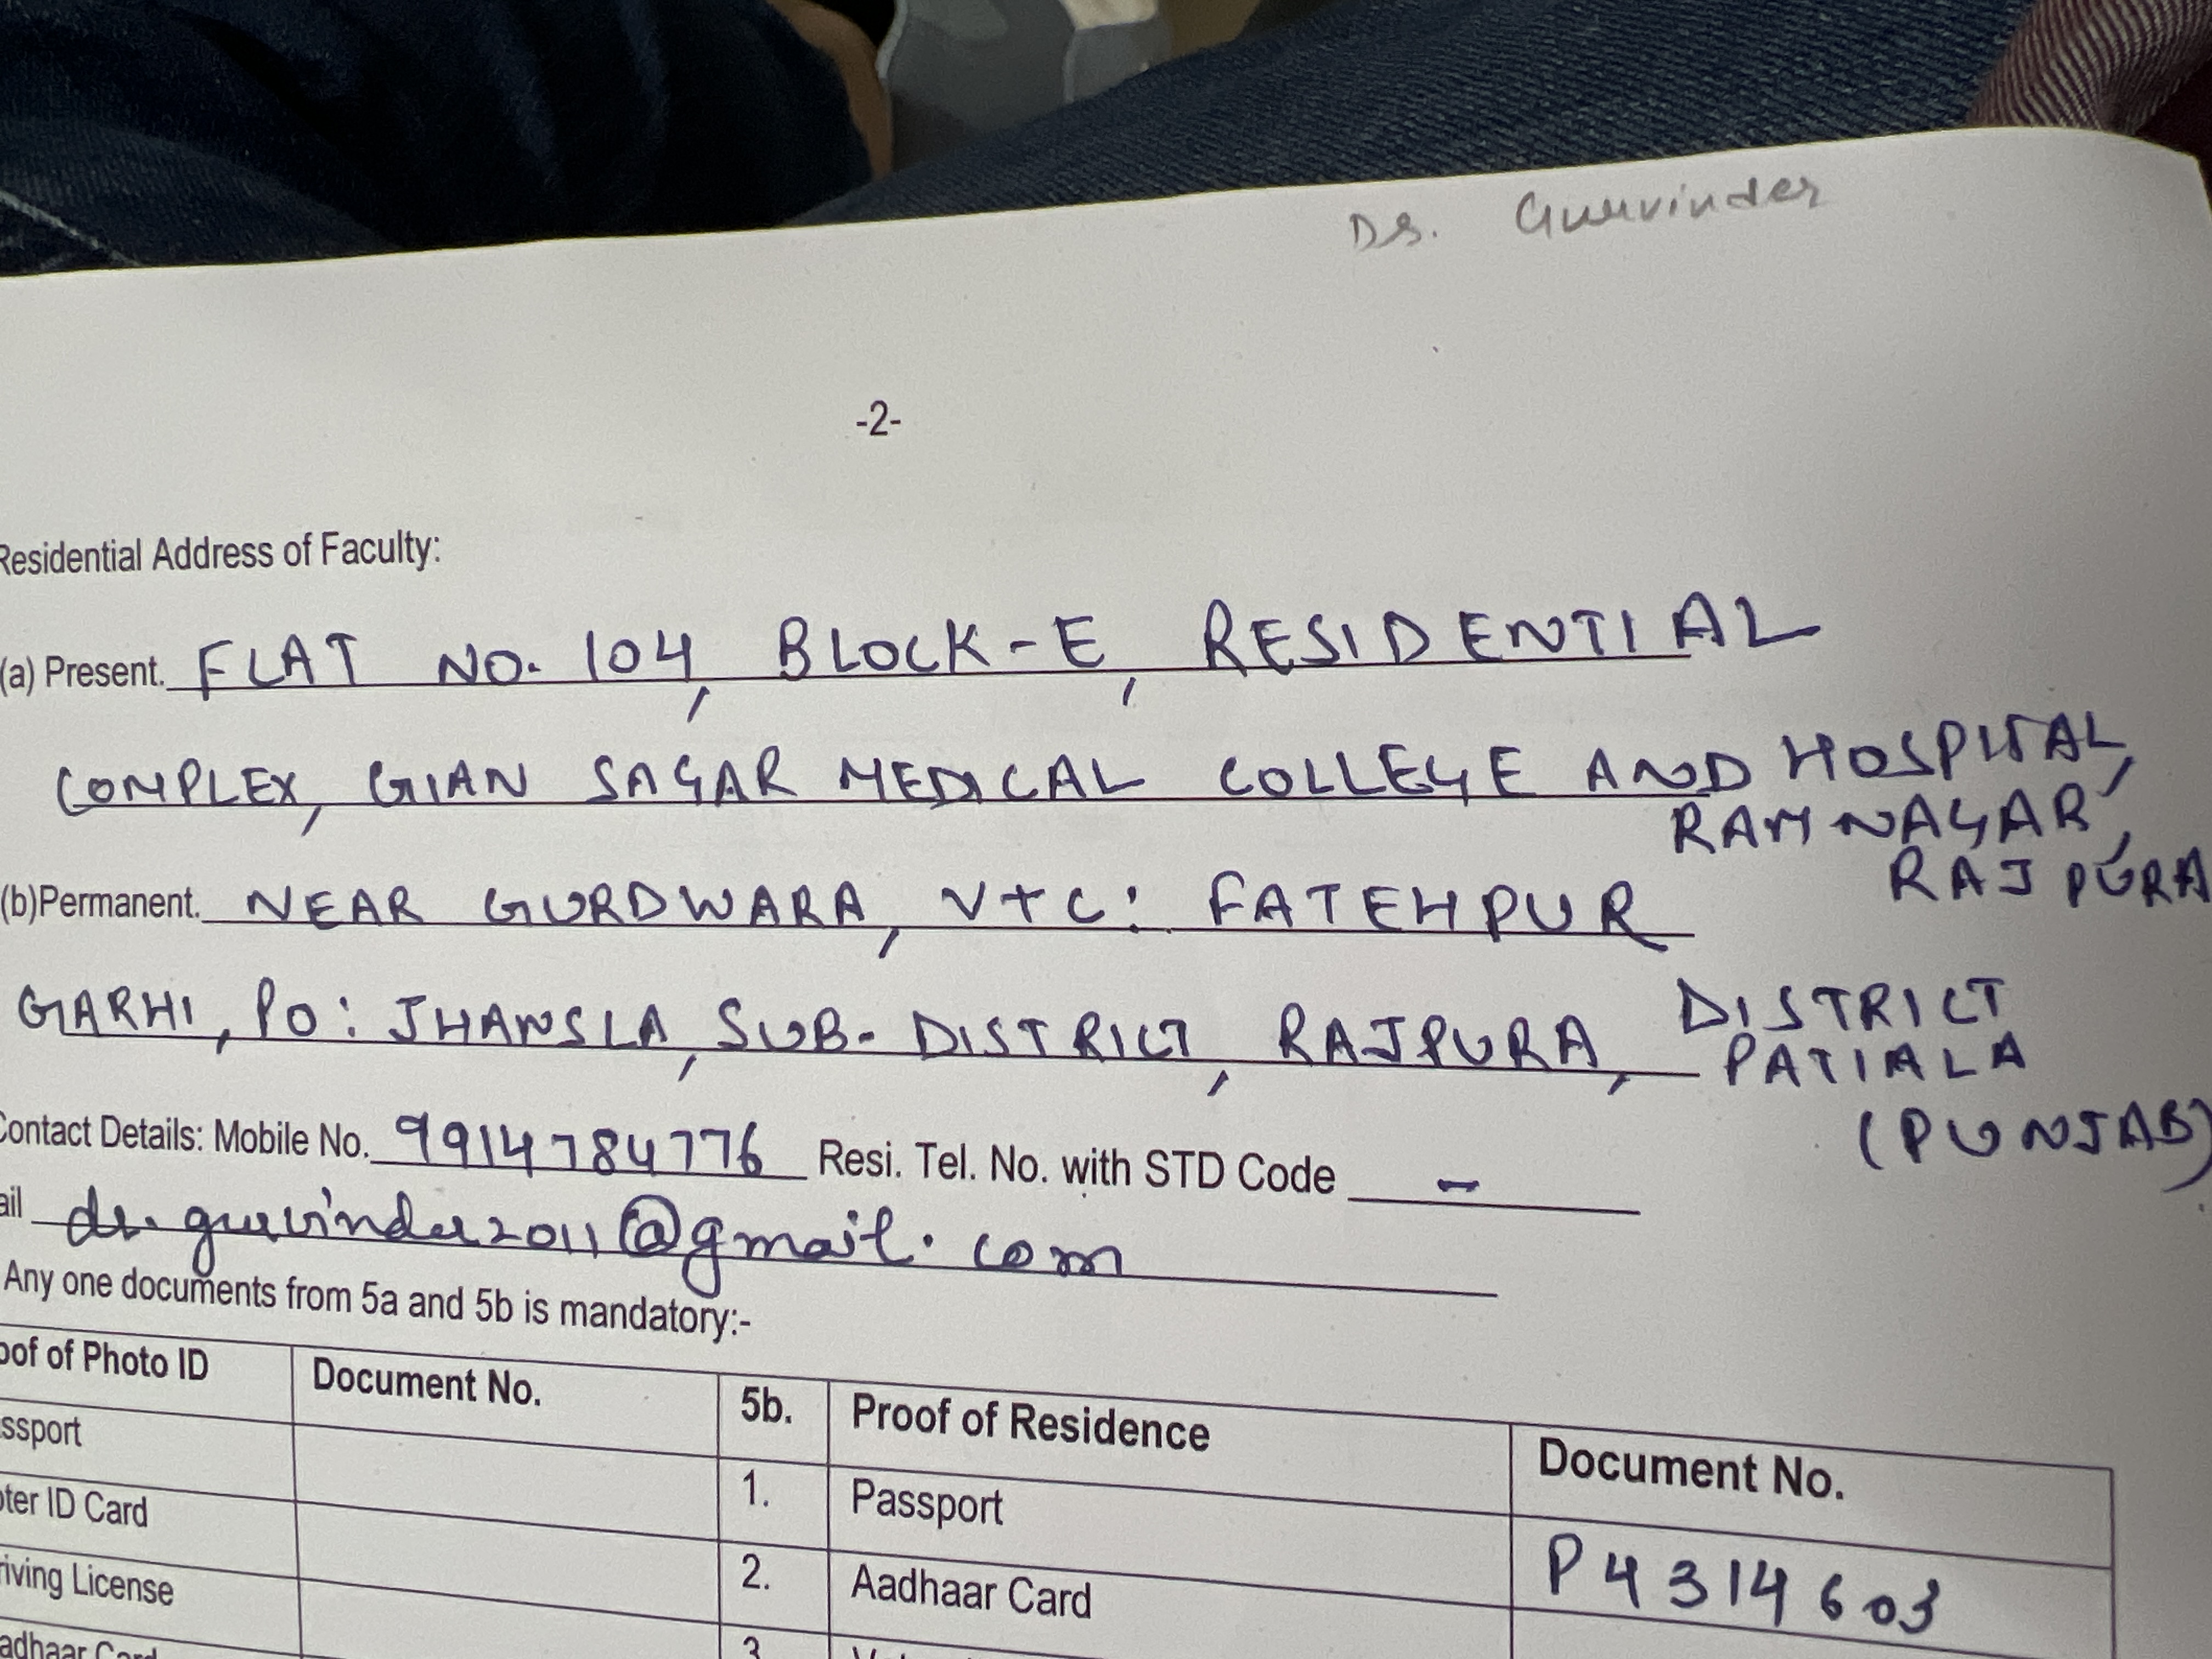 Dr. Gurvinder
-2-
Residential Address of Faculty:
(a) Present. FLAT NO. 104, BLOCK-E, RESIDENTIAL
COMPLEX, GIAN SAGAR MEDICAL COLLEGE AND HOSPITAL,
RAMNAGAR,
RAJPURA
(b)Permanent. NEAR GURDWARA, VTC: FATEHPUR
GARHI, PO: JHANSLA, SUB-DISTRICT, RAJPURA, DISTRICT
PATIALA
(PUNJAB)
Contact Details: Mobile No. 9914784776 Resi. Tel. No. with STD Code -
ail dr.gurvinder2011@gmail.com
Any one documents from 5a and 5b is mandatory:-
oof of Photo ID Document No. 5b. Proof of Residence Document No.
ssport 1. Passport P4314603
oter ID Card 2. Aadhaar Card
riving License 3.
adhaar Card